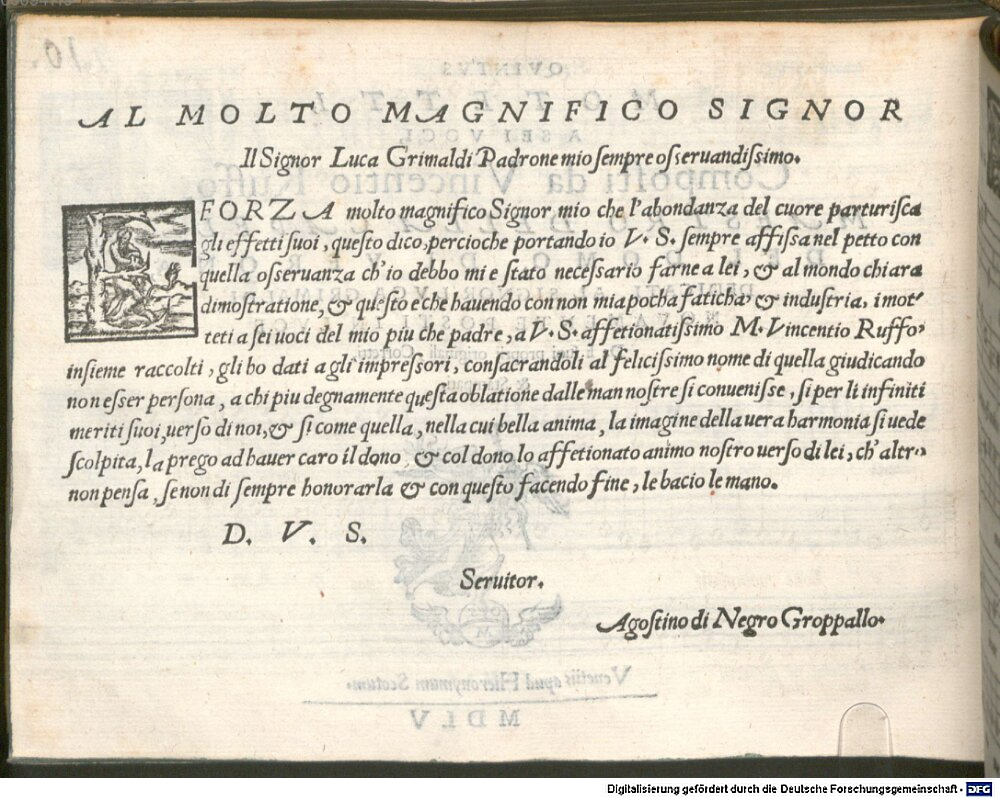 AL MOLTO MAGNIFICO SIGNOR
Il Signor Luca Grimaldi Padrone mio sempre osseruandissimo.
E FORZA molto magnifico Signor mio che l'abondanza del cuore parturisca
gli effetti suoi, questo dico, percioche portando io V. S. sempre affissa nel petto con
quella osseruanza ch'io debbo mi e stato necessario farne a lei, & al mondo chiara
dimostratione, & questo e che hauendo con non mia pocha faticha & industria, i mot-
teti a sei uoci del mio piu che padre, a V. S. affetionatissimo M. Vincentio Ruffo,
insieme raccolti, gli ho dati a gli impressori, consacrandoli al felicissimo nome di quella giudicando
non esser persona, a chi piu degnamente questa oblatione dalle man nostre si conuenisse, si per li infiniti
meriti suoi, uerso di noi, & si come quella, nella cui bella anima, la imagine della uera harmonia si uede
scolpita, la prego ad hauer caro il dono & col dono lo affetionato animo nostro uerso di lei, ch'altro
non pensa, se non di sempre honorarla & con questo facendo fine, le bacio le mano.
D. V. S.
Seruitor.
Agostino di Negro Groppallo.
QVINTVS
MOTETTI
A SEI VOCI
Composti da Vincentio Ruffo
Venetiis apud Hieronymum Scotum.
MDLV
Digitalisierung gefördert durch die Deutsche Forschungsgemeinschaft - DFG